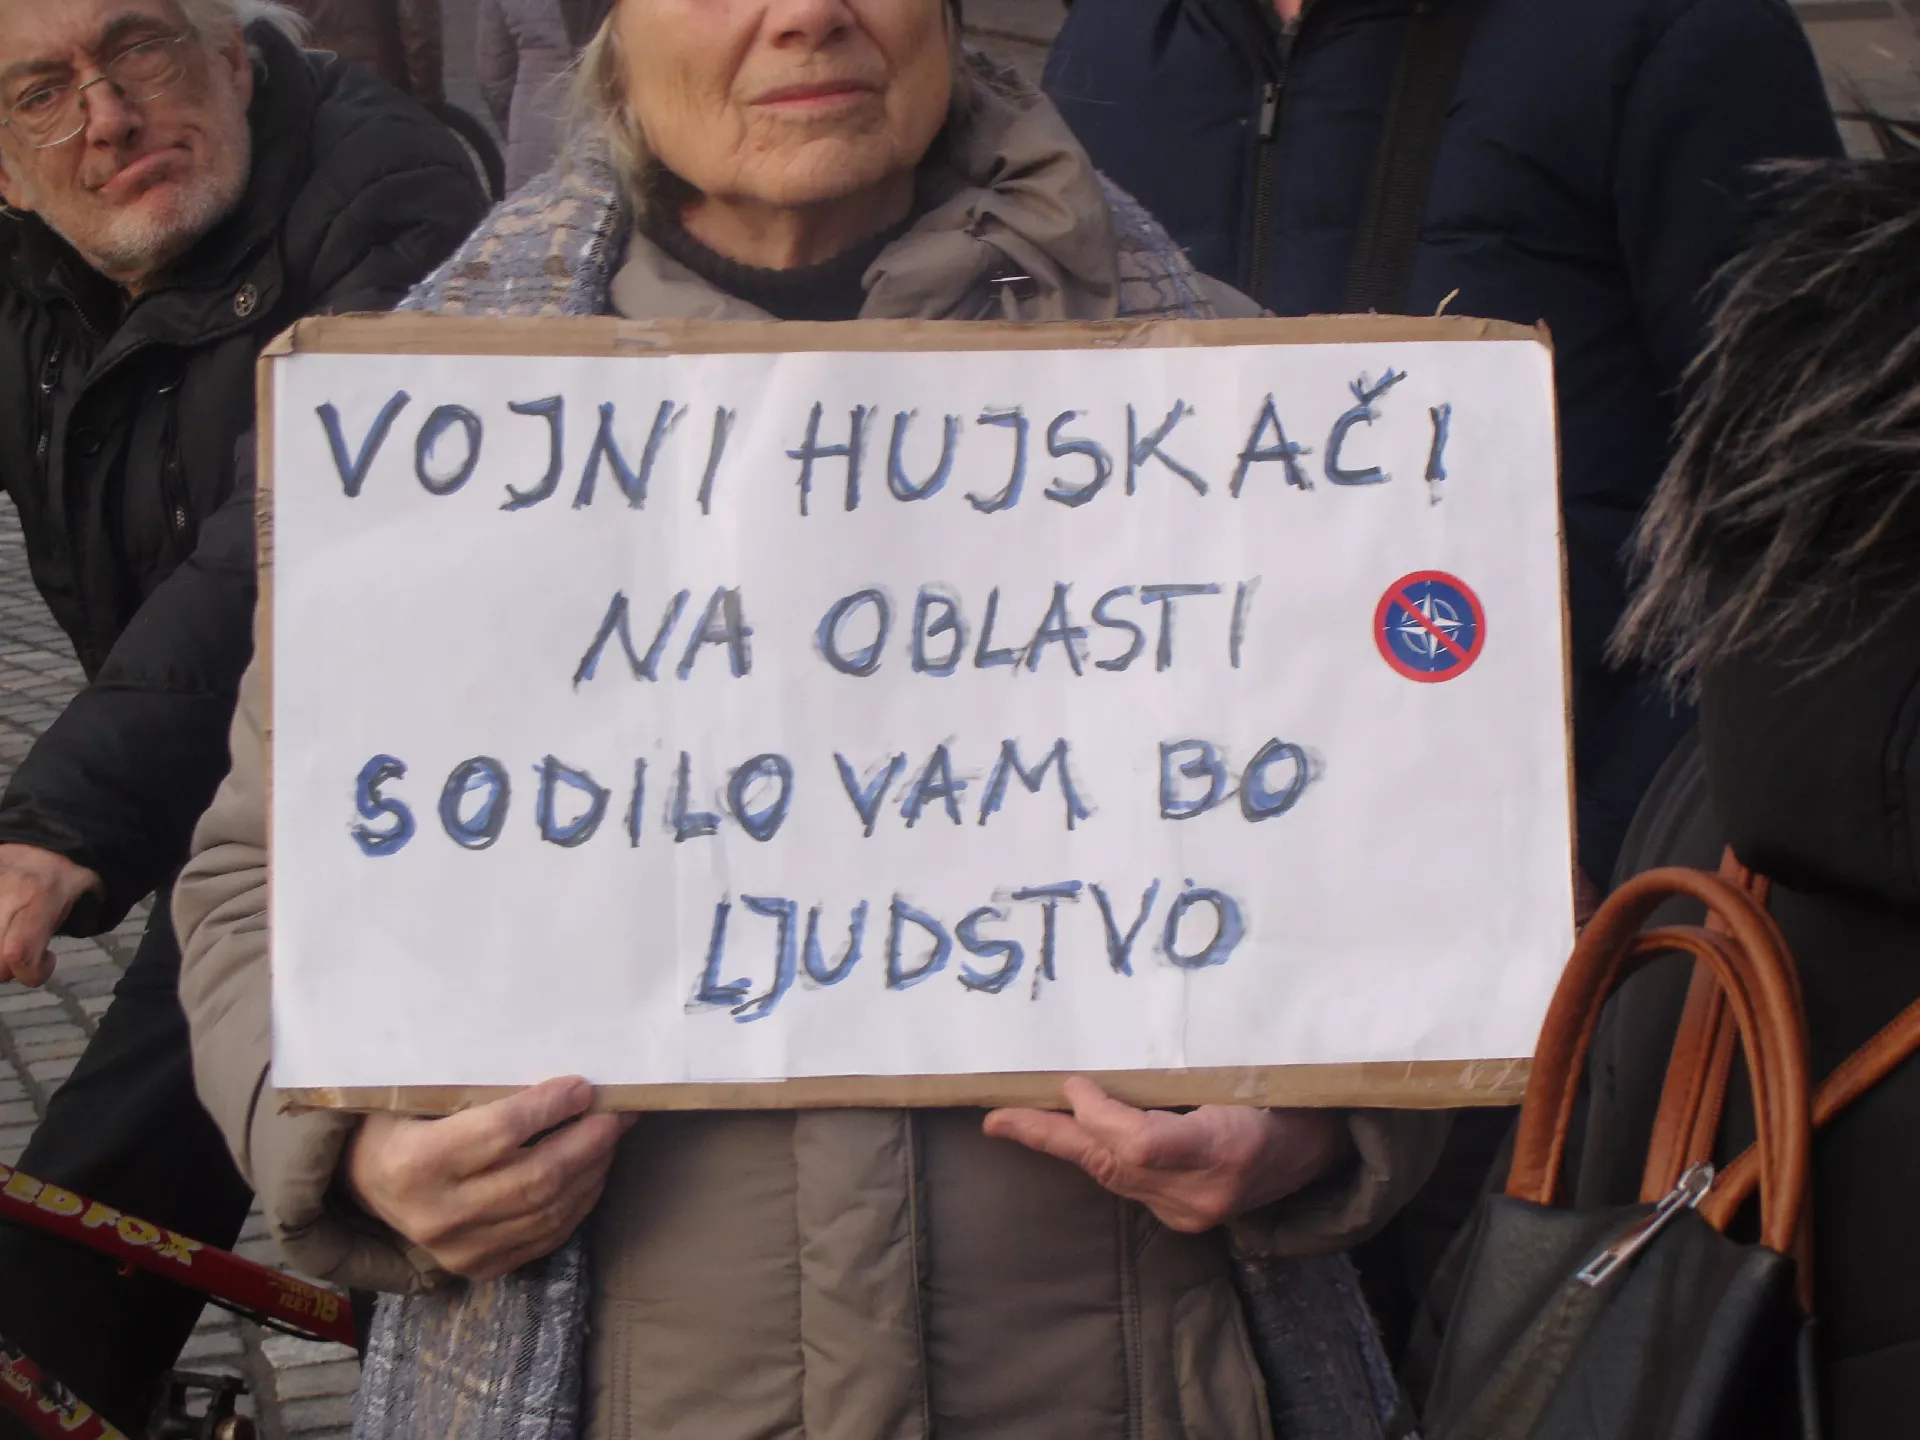 VOJNI HUJSKAČI
NA OBLASTI
SODILO VAM BO
LJUDSTVO
FOX